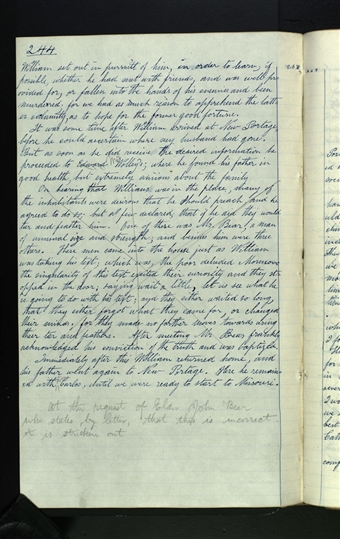 244
William set out in pursuit of him, in order to learn, if
possible, whether he had met with friends, and was well pro
vided for, or fallen into the hands of his enemies and been
murdered, for we had as much reason to apprehend the latt
er extremity, as to hope for the former good fortune.
It was some time after William arrived at New Portage,
before he could ascertain where my husband had gone.
But as soon as he did receive the desired information he
proceeded to Edward Willey's; where he found his father in
good health, but extremely anxious about the family
On hearing that William was in the place, many of
the inhabitants were anxious that he should preach, and he
agreed to do so; but a few declared, that if he did they would
tar and feather him. One of these was Mr. Bear, a man
of unusual size and strength, and besides him were three
More. These men came into the house just as William
was taking his text; which was, the poor deluded Mormons
the singularity of this text excited their curiosity and they st
opped in the door, saying wait a little, let us see what he
is going to do with his text; and they either waited so long,
that they either forgot what they came for, or changed
their minds, for they made no further moves towards using
their tar and feathers. After meeting Mr. Bear, frankly
acknowledged his conviction of the truth and was baptized.
Immediately after this William returned home, and
his father went again to New Portage. Here he remain
ed with Carlos, until we were ready to start to Missouri.
At the request of Elder John Bear
who states by letter, that this is incorrect
it is stricken out